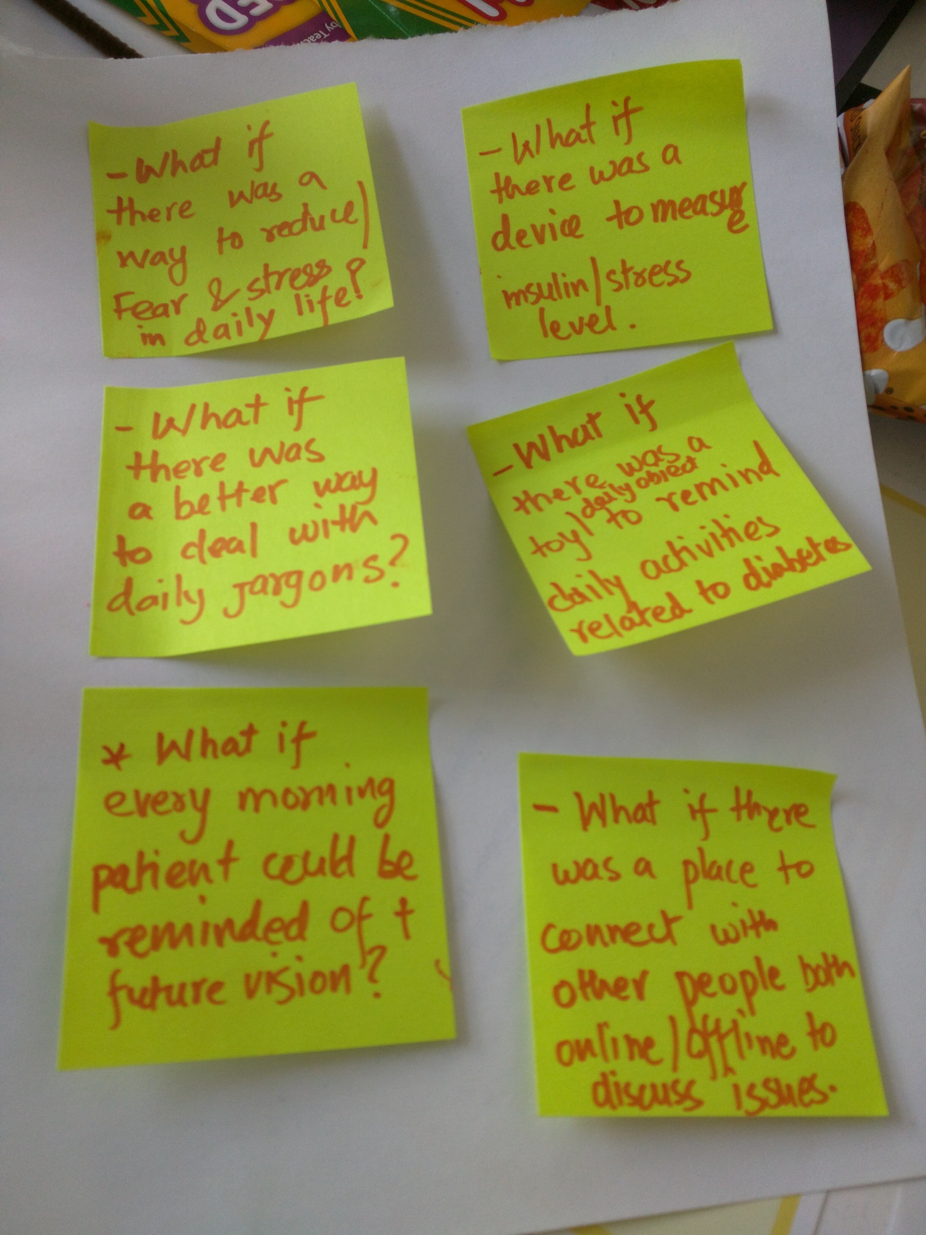 - What if
there was a
way to reduce/
Fear & stress?
in daily life!
- What if
there was a
device to measure
insulin/stress
level.
- What if
there was
a better way
to deal with
daily jargons?
- What if
there was a
daily object
toy/ to remind
daily activities
related to diabetes
* What if
every morning
patient could be
reminded of +
future vision?
- What if there
was a place to
connect with
other people both
online/offline to
discuss issues.